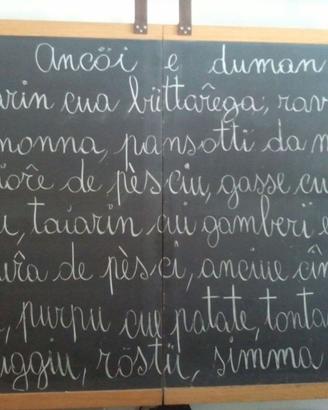 Ancöi e duman
arin cua büttarêga, rav
nonna, pansottï da n
iôre de pèsciu, gasse cu
u, taiarin cui gamberï e
ûra de pèsci, anciue cîn
, purpu cue patate, tonta
uggiu, röstïu, simma